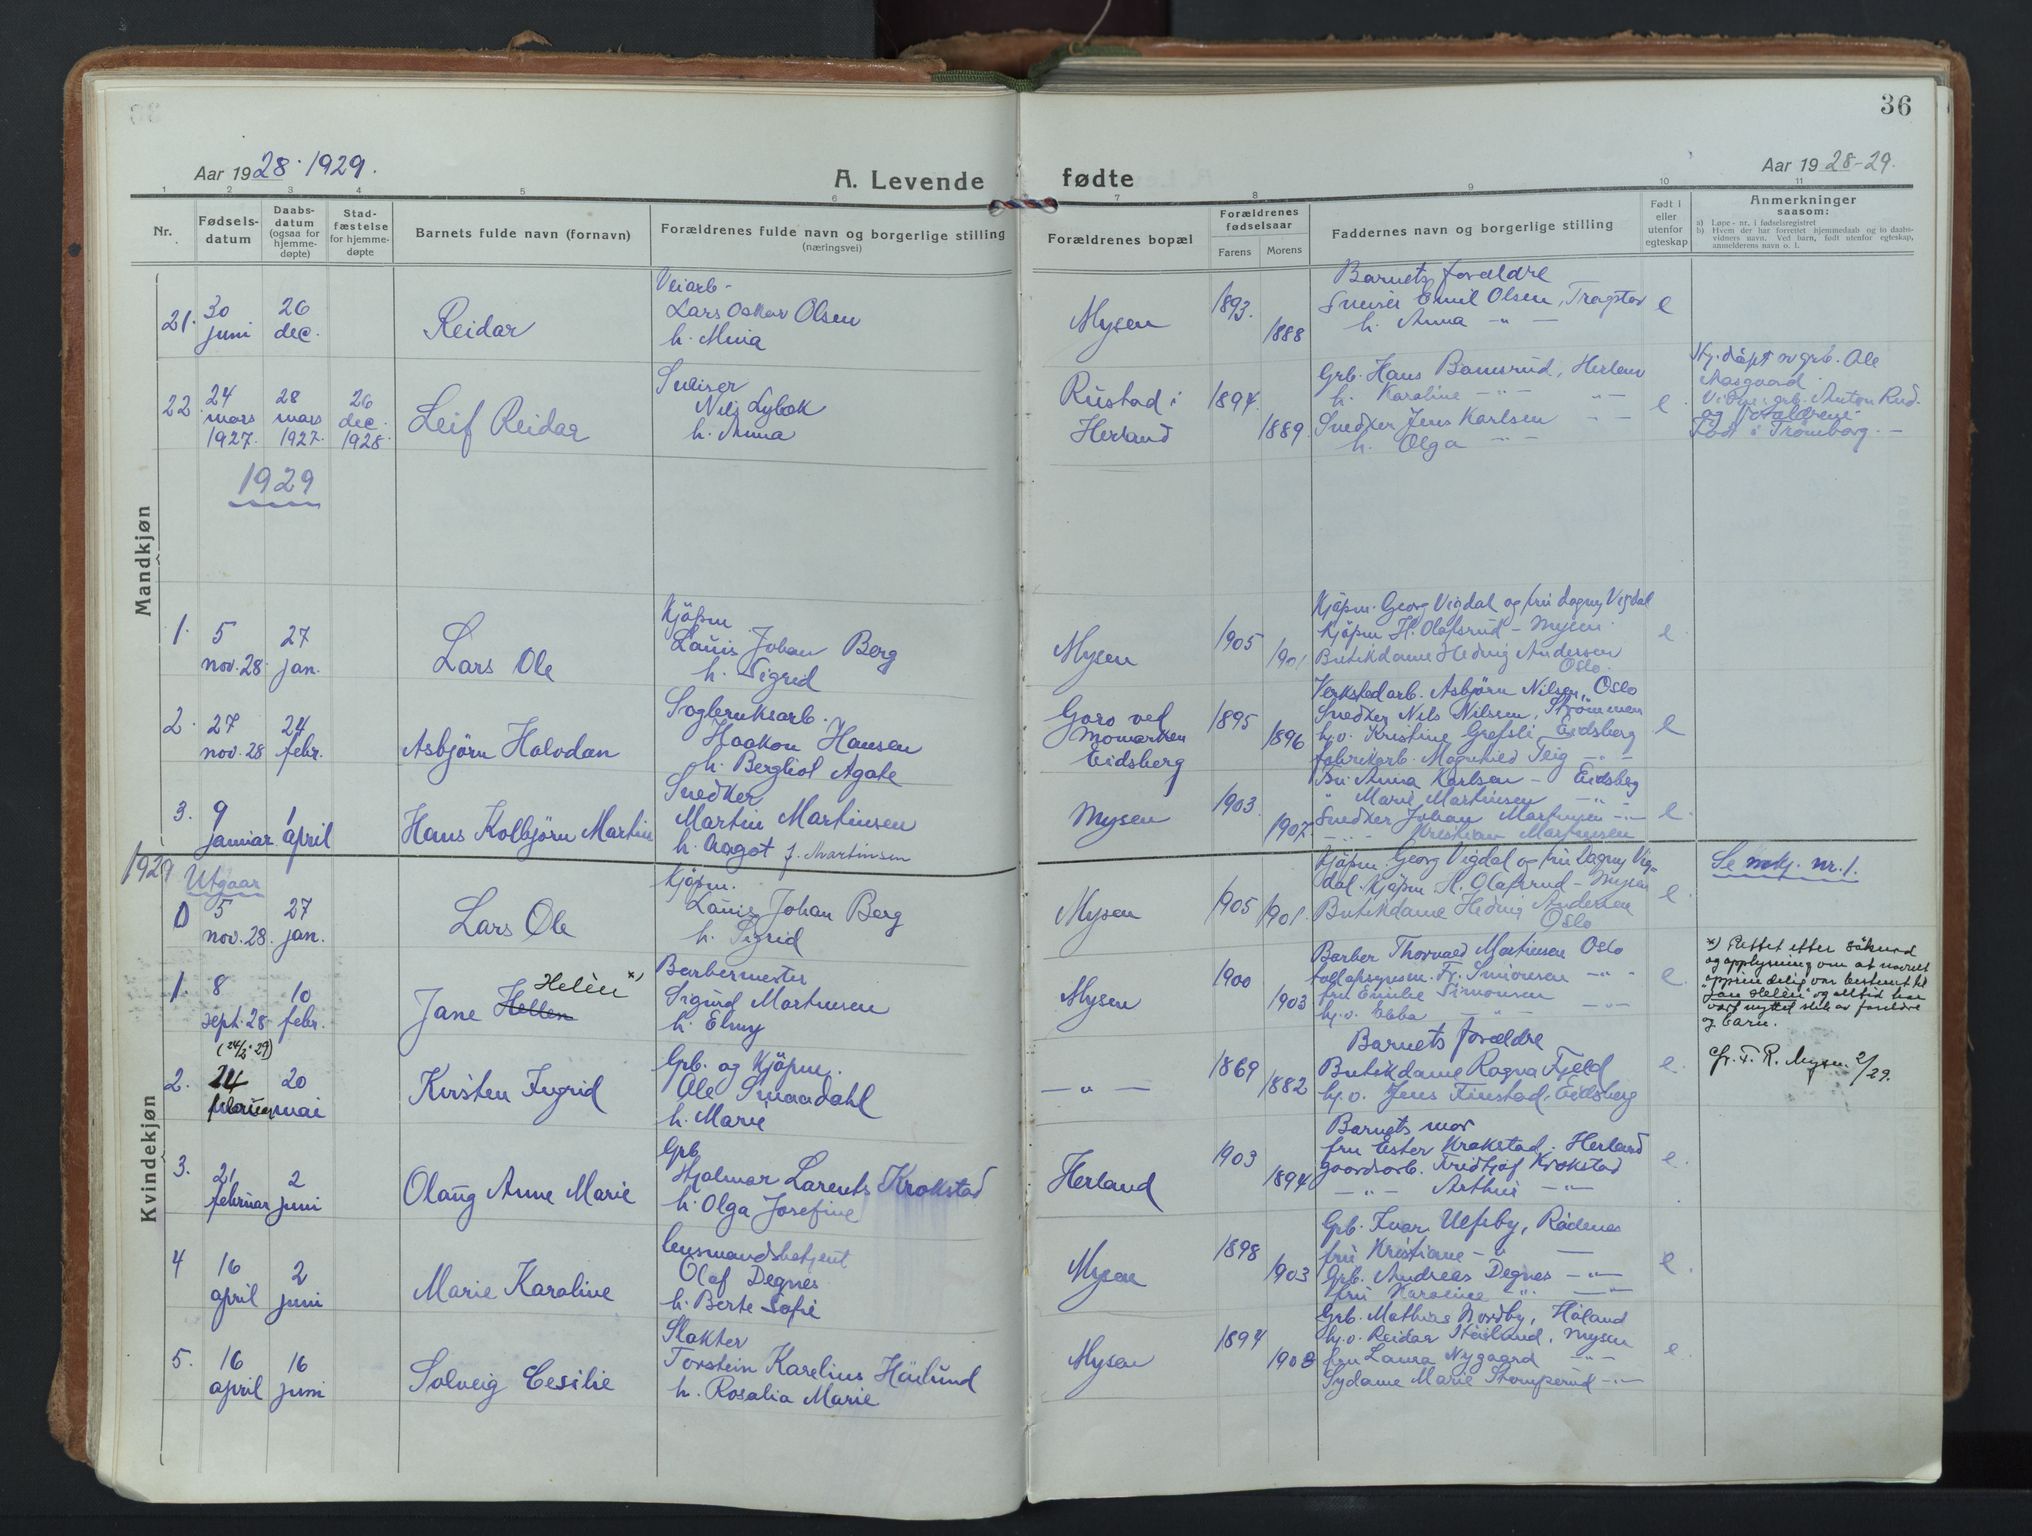 36
Aar 1928-1929.
A. Levende
fødte
Aar 1928-29.
1 2 3 4 5 6 7 8 9 10 11
Nr.
Fødsels-
datum
Daabs-
datum
(ogsaa for
hjemme-
døpte)
Stad-
fæstelse
for hjemme-
døpte
Barnets fulde navn (fornavn)
Forældrenes fulde navn og borgerlige stilling
(næringsvei)
Forældrenes bopæl
Forældrenes
fødselsaar
Farens
Morens
Faddernes navn og borgerlige stilling
Født i
eller
utenfor
egteskap
Anmerkninger
saasom:
a) Løpe-nr. i fødselsregistret
b) Hvem der har forrettet hjemmedaab og to daabs-
vidners navn. Ved barn, født utenfor egteskap,
anmelderens navn o. l.
Mandkjøn
21.
30
juni
26
dec.
Reidar
Veiarb-
Lars Oskar Olsen
h. Mina
Mysen
1893.
1888
Barnets forældre
Emil Olsen, Trøgstad
h. Anna - " -
e
22
24
mars
1927.
28
mars
1927.
26
dec.
1928.
Leif Reidar
Snekker
Nils Lybæk
h. Anna
Rustad i
Herland
1894.
1889.
Grb. Hans Bamsrud, Herland
h. Karoline - " -
Snedker Jens Karlsen - -
h. Olga - " -
e.
Hj. døpt av grb. Ole
Aasgaard.
Vidner: grb. Anton Rud.
og forældrene.
Født i Trømborg. -
1929
1.
5
nov. 28.
27
jan.
Lars Ole
Kjøpm
Lauis Johan Berg
h. Sigrid
Mysen
1905
1901
Kjøpm. Georg Vigdal og fru Dagny Vigdal
Kjøpm H. Olafsrud - Mysen.
Butikdame Hedvig Andersen
Oslo.
e.
2.
27
nov. 28
24
febr.
Asbjørn Halvdan
Sagbruksarb.
Haakon Hansen
h. Bergliot Agate
Goro ved
Momarken
Eidsberg
1895
1896
Verkstedarb. Asbjørn Nilsen, Oslo
Snedker Nils Nilssen, Strømmen
h.v. Kristine Grefsli, Eidsberg
fabrikarb. Magnhild Teig - " -
e
3.
9
januar
1
april
Hans Kolbjørn Martin
Snedker
Martin Martinsen
h. Aagot f. Martinsen
Mysen
1903
1907.
Fru Anna Karlsen - Eidsberg
" Marie Martinsen - " -
Snedker Johan Martinsen - " -
- " - Kristian Martinsen
e.
1929
Kvindekjøn
Utgaar
0
5
nov. 28.
27
jan.
Lars Ole
Kjøpm.
Lauis Johan Berg
h. Sigrid
Mysen
1905
1901.
Kjøpm. Georg Vigdal og fru Dagny Vig-
dal. Kjøpm H. Olafsrud - Mysen
Butikdame Hedvig Andersen
Oslo
e.
Se mkj. nr. 1.
1.
8
sept. 28
10
febr.
Helèn *)
Jane Hellen
Barbermester
Sigurd Martinsen
h. Elmy
Mysen
1900
1903
Barber Thorvald Martinsen Oslo
Fr. Simonsen - " -
fru Emilie Simonsen - " -
h.v. Ebba - " -
e.
*) Rettet efter søknad
og opplysning om at navnet
oprindelig var bestemt til
"Jan Helèn" og alltid har
vært nyttet slik av foreldre
og barn.
2.
(24/2-29)
24
februar
20
mai
Kirsten Ingrid
Grb. og Kjøpm.
Ole Smaadahl
h. Marie
- " -
1869
1882
Barnets forældre
Butikdame Ragna Fjeld
h.v. Jens Finstad, Eidsberg
e.
cfr. F. R. Mysen 2/29.
3.
21
februar
2
juni
Olaug Anne Marie
Grb
Hjalmar Larents Krokstad
h. Olga Josefine
Herland
1903
1894
Barnets mor
fru Ester Krokstad, Herland
gaardsarb. Fridtjof Krokstad
- " - Arthur - " -
e.
4
16
april
2
juni
Marie Karoline
lensmandsbetjent
Olaf Degnes
h. Berte Sofie
Mysen
1898
1903
Grb. Ivar Ulfsby, Rødenes
fru Kristiane - " -
Grb. Andreas Degnes - " -
fru Karoline - " -
e.
5.
16
april
16
juni
Solveig Cesilie
Slakter
Torstein Karelius Höilund
h. Rosalia Marie
Mysen
1894
1908
Grb. Mathias Nordby, Høland
h.v. Reidar Høilund, Mysen
fru Laura Nygaard - " -
Sydame Marie Stomperud - " -
e.